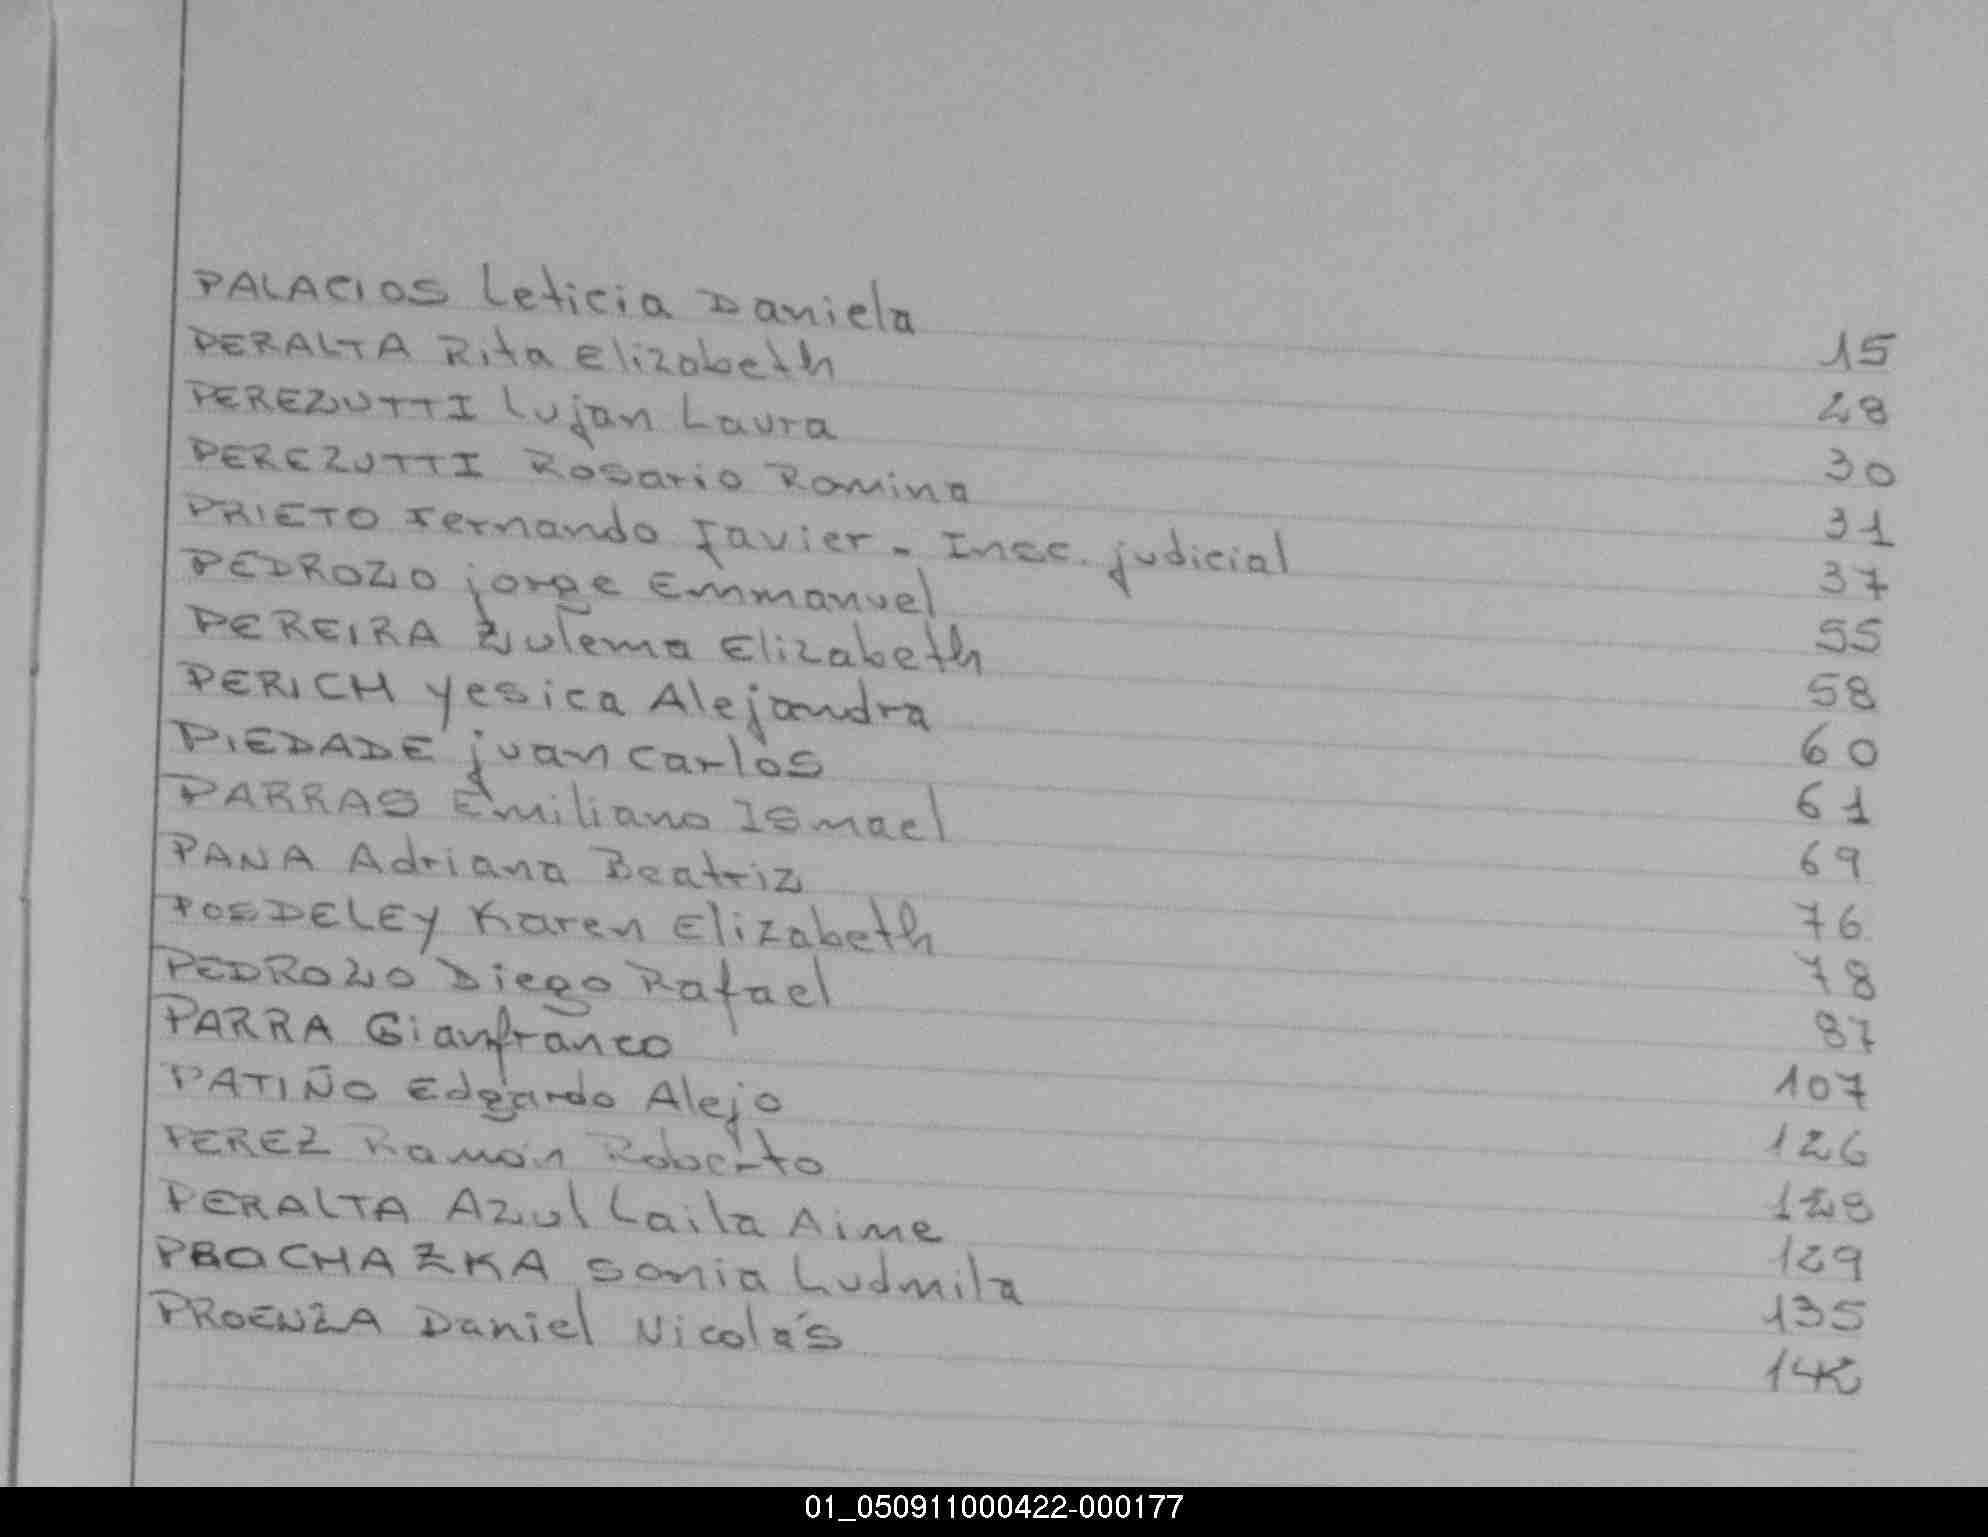 PALACIOS Leticia Daniela 15
PERALTA Rita Elizabeth 28
PEREZUTTI Lujan Laura 30
PEREZUTTI Rosario Romina 31
PRIETO Fernando Javier - Insc. judicial 37
PEDROZO jorge Emmanuel 55
PEREIRA Zulema Elizabeth 58
PERICH yesica Alejandra 60
PIEDADE juan carlos 61
PARRAS Emiliano Ismael 69
PANA Adriana Beatriz 76
POSDELEY Karen Elizabeth 78
PEDROZO Diego Rafael 87
PARRA Gianfranco 107
PATIÑO Edgardo Alejo 126
PEREZ Ramón Roberto 128
PERALTA Azul Laila Aime 129
PROCHAZKA Sonia Ludmila 135
PROENZA Daniel Nicolás 142
01_050911000422-000177